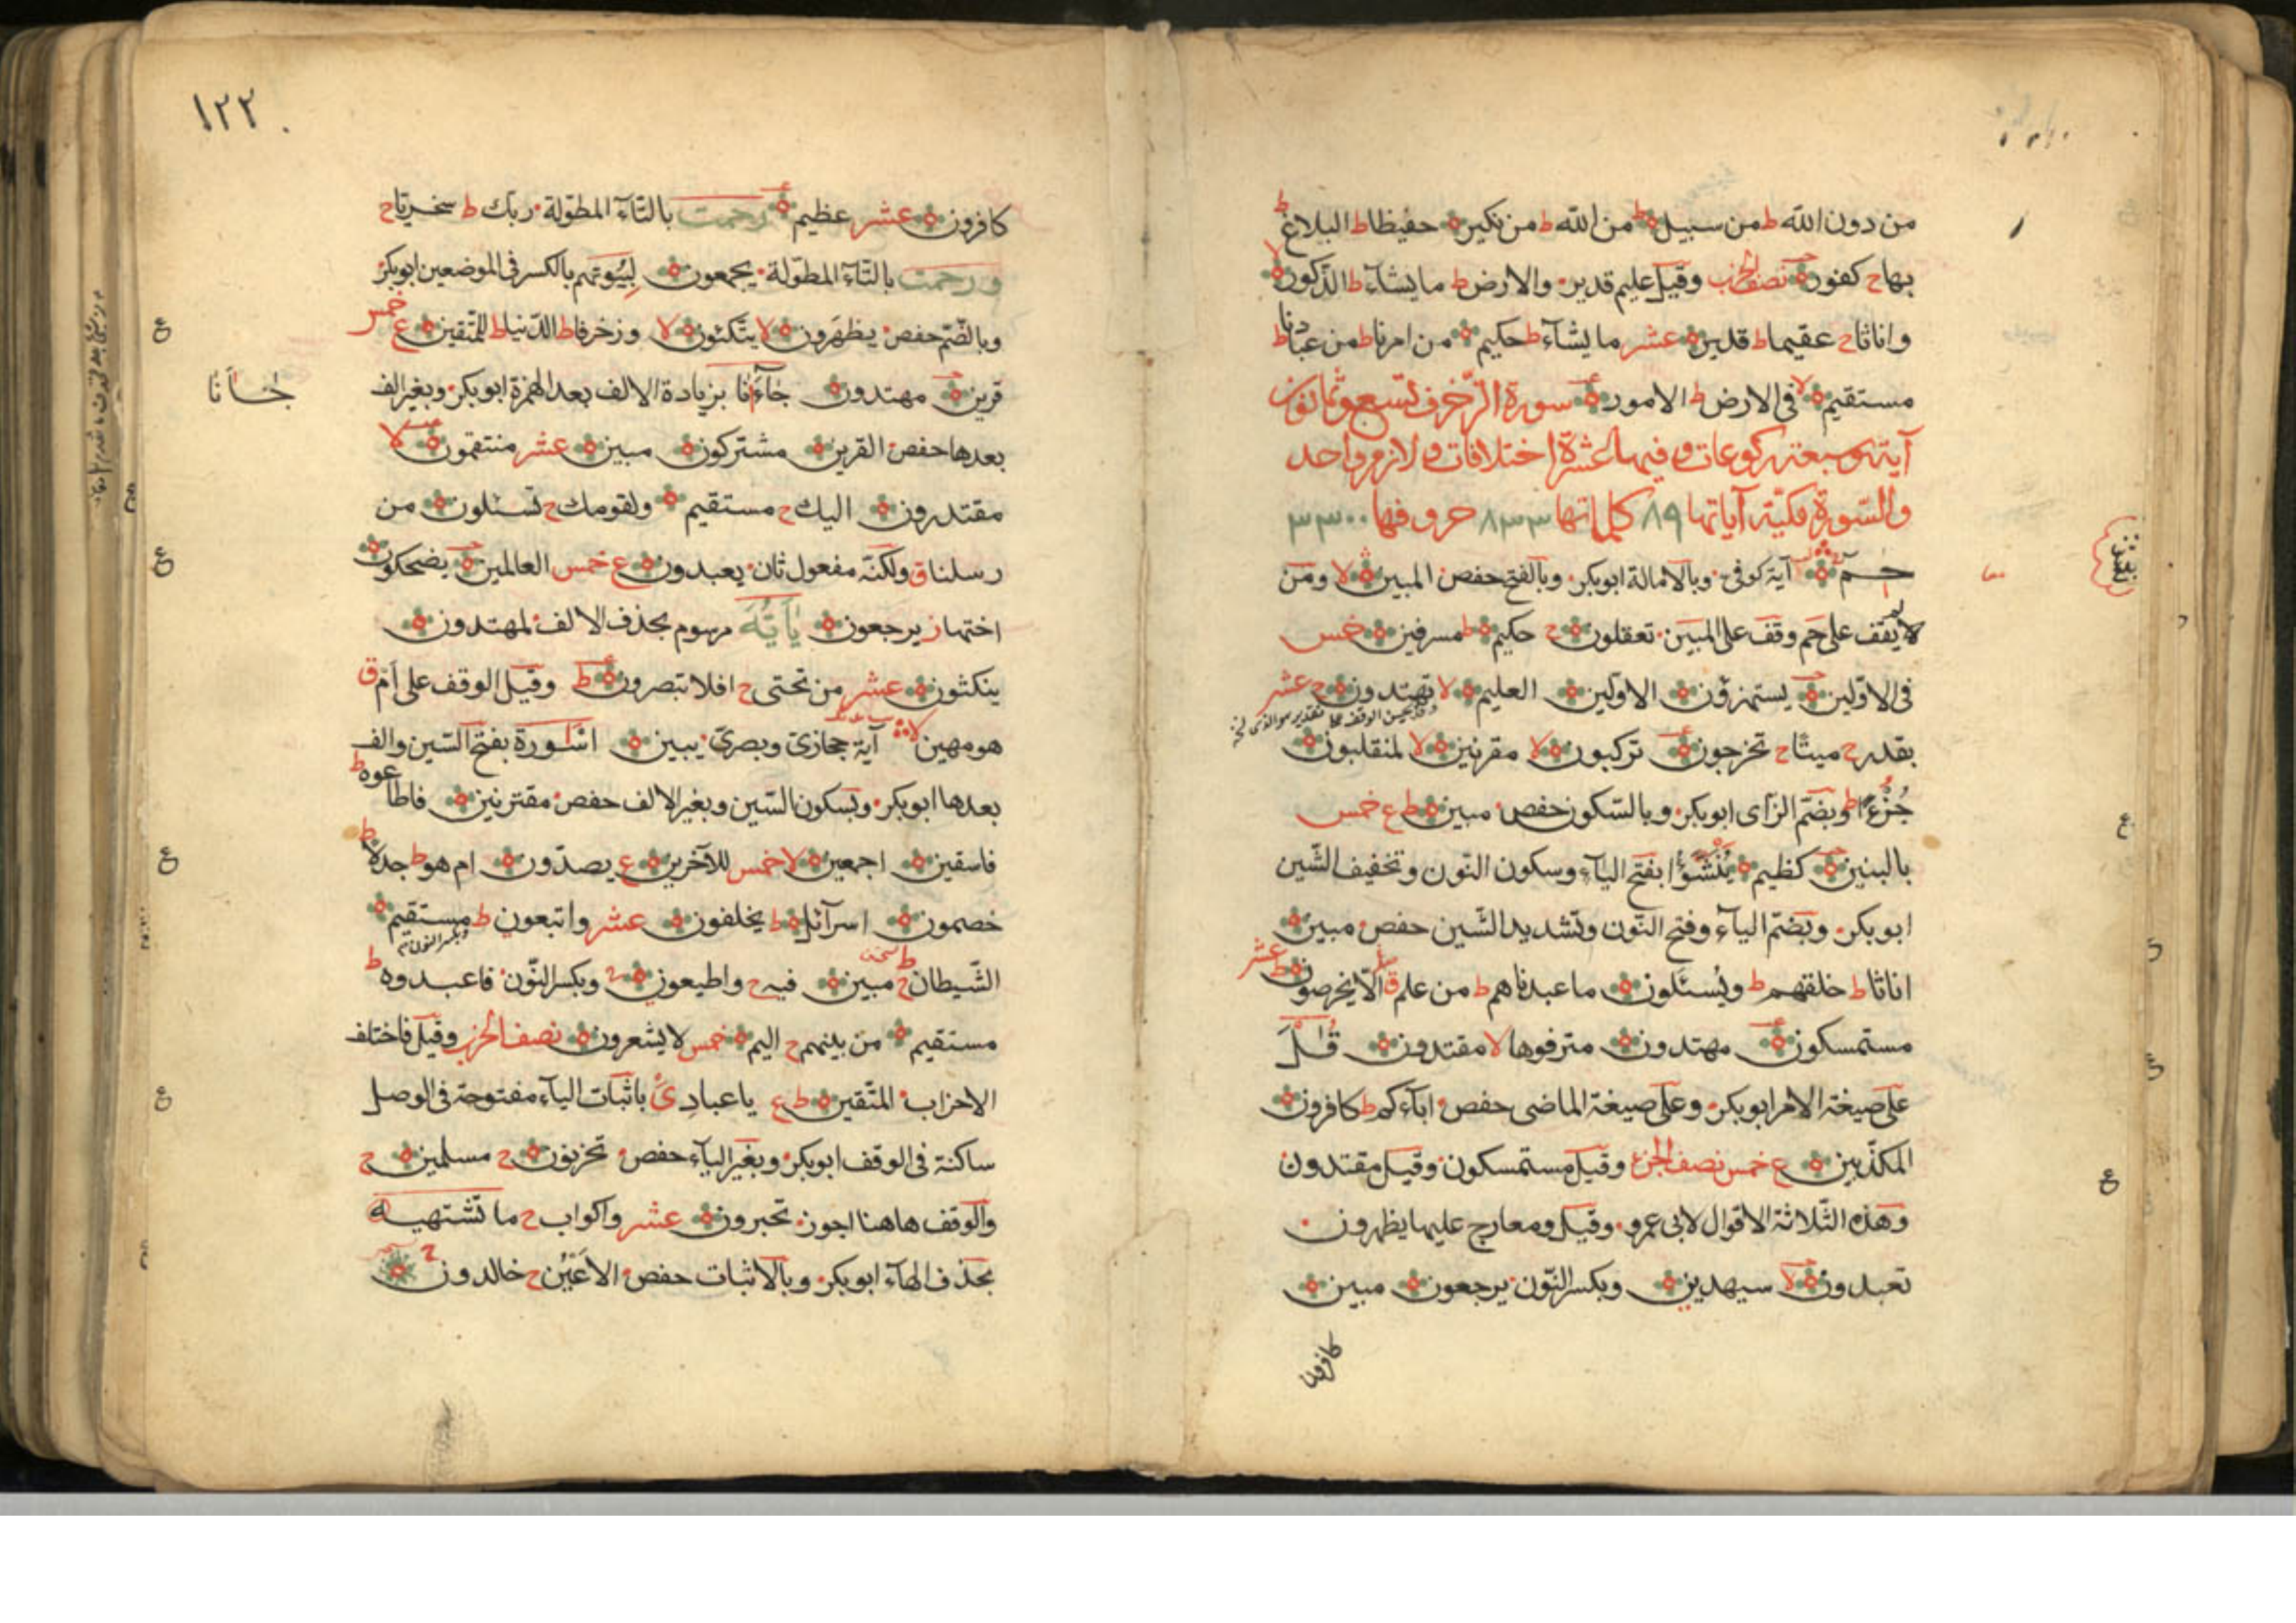 من دون الله ط من سبيل ط من الله ط من نكير حفيظا ط البلاغ ط
بها ح كفور نصف الحزب وقيل عليم قدير والارض ط ما يشآء ط الذكور لا
واناثا ح عقيما ط قدير عشر ما يشآء ط حكيم من امرنا ط من عبادنا ط
مستقيم لا فى الارض ط الامور سورة الزخرف تسع وثمانون
آية وسبعة ركوعات وفيها عشرة اختلافات ولازم واحد
والسورة مكية آياتها ٨٩ كلماتها ٨٣٣ حروفها ٣٣٠٠
حم آية كوفى وبالامالة ابوبكر وبالفتح حفص المبين لا ومن
لم يقف على حم وقف على المبين تعقلون ح حكيم ط مسرفين خمس
فى الاولين يستهزؤن الاولين العليم لا تهتدون ح عشر
بقدر ح ميتا ح تخرجون تركبون لا مقرنين لا لمنقلبون
جزءا ط وبضم الزآى ابوبكر وبالسكون حفص مبين ط ع خمس
بالبنين كظيم ينشؤا بفتح اليآء وسكون النون وتخفيف الشين
ابوبكر وبضم اليآء وفتح النون وتشديد الشين حفص مبين
اناثا ط خلقهم ط ويسئلون ما عبدناهم ط من علم ق الا يخرصون ط عشر
مستمسكون مهتدون مترفوها لا مقتدون قل
على صيغة الامر ابوبكر وعلى صيغة الماضى حفص ابآءكم ط كافرون
المكذبين ع خمس نصف الجزء وقيل مستمسكون وقيل مقتدون
وهذه الثلاثة الاقوال لابى عمرو وقيل ومعارج عليها يظهرون
تعبدون لا سيهدين وبكسر النون يرجعون مبين
كافرون
١٢٢
كافرون عشر عظيم رحمت بالتآء المطولة ربك ط سخريا ح
ورحمت بالتآء المطولة يجمعون لبيوتهم بالكسر فى الموضعين ابوبكر
وبالضم حفص يظهرون لا يتكئون لا وزخرفا ط الدنيا ط للمتقين ع خمس
قرين مهتدون جآءانا بزيادة الالف بعد الهمزة ابوبكر وبغير الف
جاأنا
بعدها حفص القرين مشتركون مبين عشر منتقمون لا
مقتدرون اليك ح مستقيم ولقومك ح تسئلون من
رسلنا ق ولكنه مفعول ثان يعبدون ع خمس العالمين يضحكون
اختها ز يرجعون يايه مرسوم بحذف الالف لمهتدون
ينكثون عشر من تحتى ح افلا تبصرون ط وقيل الوقف على ام ق
هو مهين لا آية حجازى وبصرى يبين اساورة بفتح السين والف
بعدها ابوبكر وبسكون السين وبغير الالف حفص مقترنين فاطاعوه ط
فاسقين اجمعين لا خمس للآخرين ع يصدون ام هو ط جدلا ط
خصمون اسرآئل ط يخلفون عشر واتبعون ط مستقيم
الشيطان ح مبين فيه ح واطيعون وبكسر النون فاعبدوه ط
مستقيم من بينهم ح اليم خمس لا يشعرون نصف الحزب وقيل فاختلف
الاحزاب المتقين ط ع ياعبادى باثبات اليآء مفتوحة فى الوصل
ساكنة فى الوقف ابوبكر وبغير اليآء حفص تحزنون ح مسلمين ح
والوقف هاهنا اجوز تحبرون عشر واكواب ح ما تشتهيه
بحذف الهآء ابوبكر وبالاثبات حفص الاعين ح خالدون ح